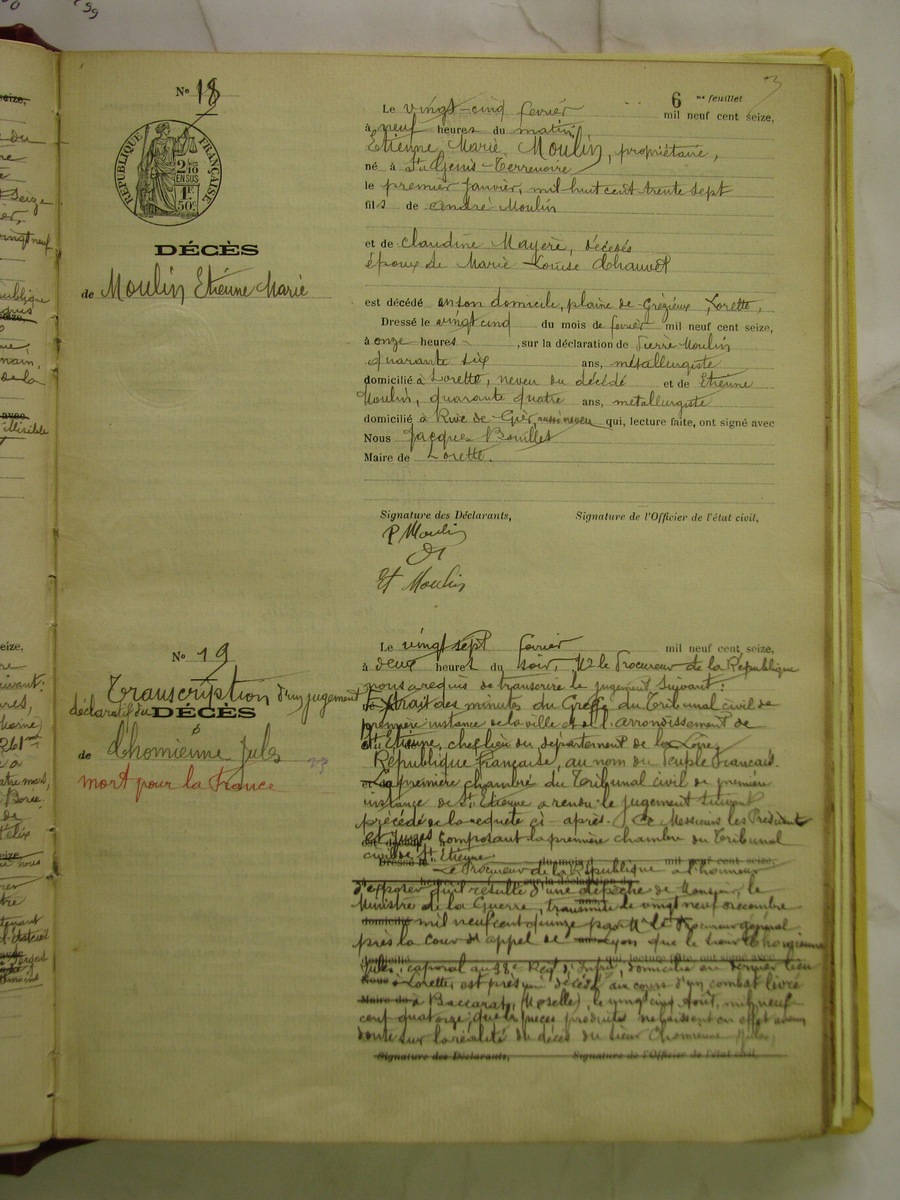 6 me feuillet
No 18
RÉPUBLIQUE FRANÇAISE
2/10 EN SUS
1F 50c
DÉCÈS
de Moulin Etienne Marie
Le vingt-cinq fevrier mil neuf cent seize,
à neuf heures du matin,
Etienne Marie Moulin, propriétaire,
né à St Genis-Terrenoire
le premier Janvier, mil huit cent trente sept
fils de André Moulin
et de Claudine Mayère, décédés
époux de Marie Louise Chauvet
est décédé en son domicile, plaine de Grézieux, Lorette,
Dressé le vingt cinq du mois de fevrier mil neuf cent seize,
à onze heures, sur la déclaration de Pierre Moulin
quarante six ans, métallurgiste
domicilié à Lorette, neveu du décédé et de Etienne
Moulin, quarante quatre ans, metallurgiste
domicilié à Rive de Gier, aussi neveu qui, lecture faite, ont signé avec
Nous Jacques Bouillet
Maire de Lorette.
Signature des Déclarants, Signature de l'Officier de l'état civil,
P Moulin
Et Moulin
No 19
Transcription d'un jugement
déclaratif du DÉCÈS
de Chomienne Jules
mort pour la France
Le vingt sept fevrier mil neuf cent seize,
à deux heures du soir, Mr le Procureur de la République
nous a requis de transcrire le jugement suivant :
Extrait des minutes du Greffe du Tribunal civil de
première instance de la ville et de l'arrondissement de
St Etienne, chef lieu du département de la Loire,
République française, au nom du Peuple Français.
La première chambre du Tribunal civil de première
instance de St Etienne a rendu le jugement suivant
précédé de la requete ci-après. A Messieurs les Président
et Juges composant la première chambre du Tribunal
civil de St Etienne
Dressé le du mois d mil neuf cent seize,
Le Procureur de la République a l'honneur
heures sur la déclaration de
d'exposer qu'il résulte d'une dépêche de Monsieur le
Ministre de la Guerre, transmise le vingt neuf decembre
domicilié mil neuf cent quinze par Mr le Procureur général
près la cour d'appel de Lyon que le sieur Chomienne
domicilié qui, lecture faite, ont signé avec
Jules, caporal au 38e Regt d'Infrie, domicilié en dernier lieu
Nous à Lorette, est présumé décédé au cours d'un combat livré
Maire de à Baccarat, (Moselle), le vingt cinq Août, mil neuf
cent quatorze; que les pièces produites ne laissent en effet aucun
doute sur la réalité du décès du sieur Chomienne Jules,
Signature des Déclarants, Signature de l'Officier de l'état civil,